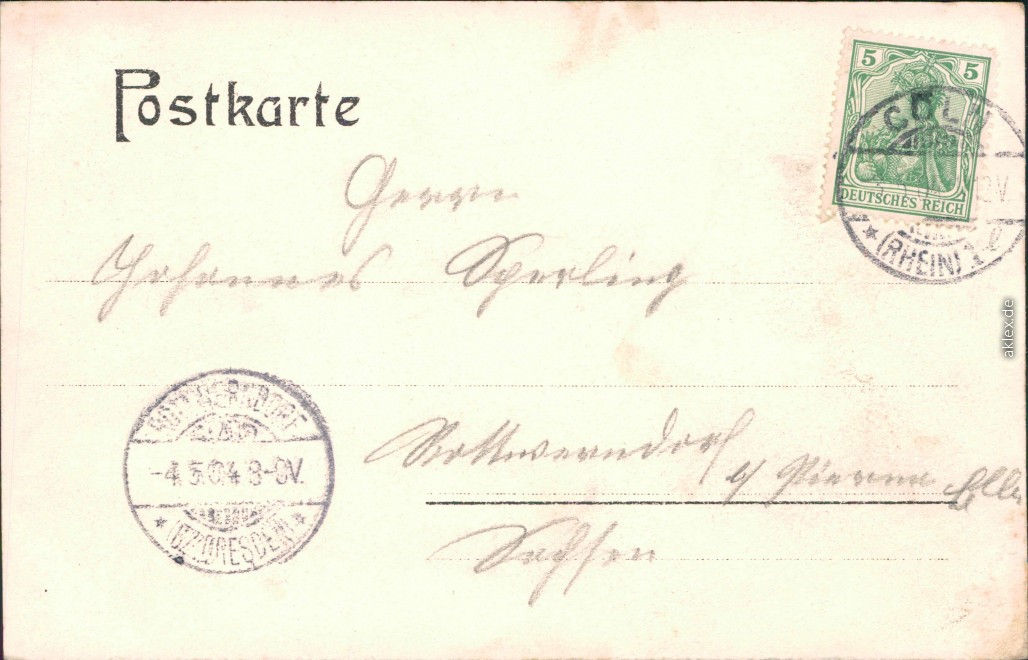 Postkarte
5 5
DEUTSCHES REICH
CÖLN
(RHEIN) 1
Herrn
Johannes Sperling
ROTTWERNDORF
-4.5.04 8-9V.
(BZ. DRESDEN)
Rottwerndorf
b/ Pirna
Sachsen
aklex.de